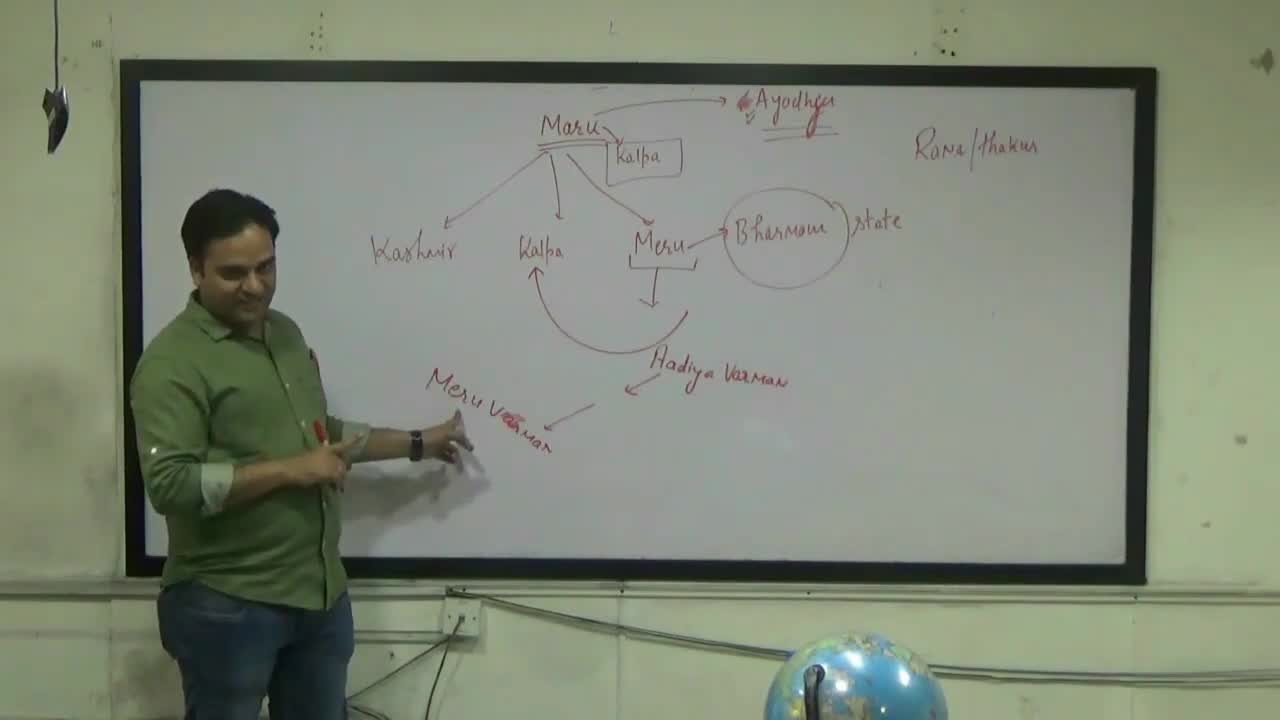 Ayodhya
Maru
Kalpa
Rana/thakur
Kashmir
Kalpa
Meru
Bharmour
state
Aadiya Varman
Meru Varman